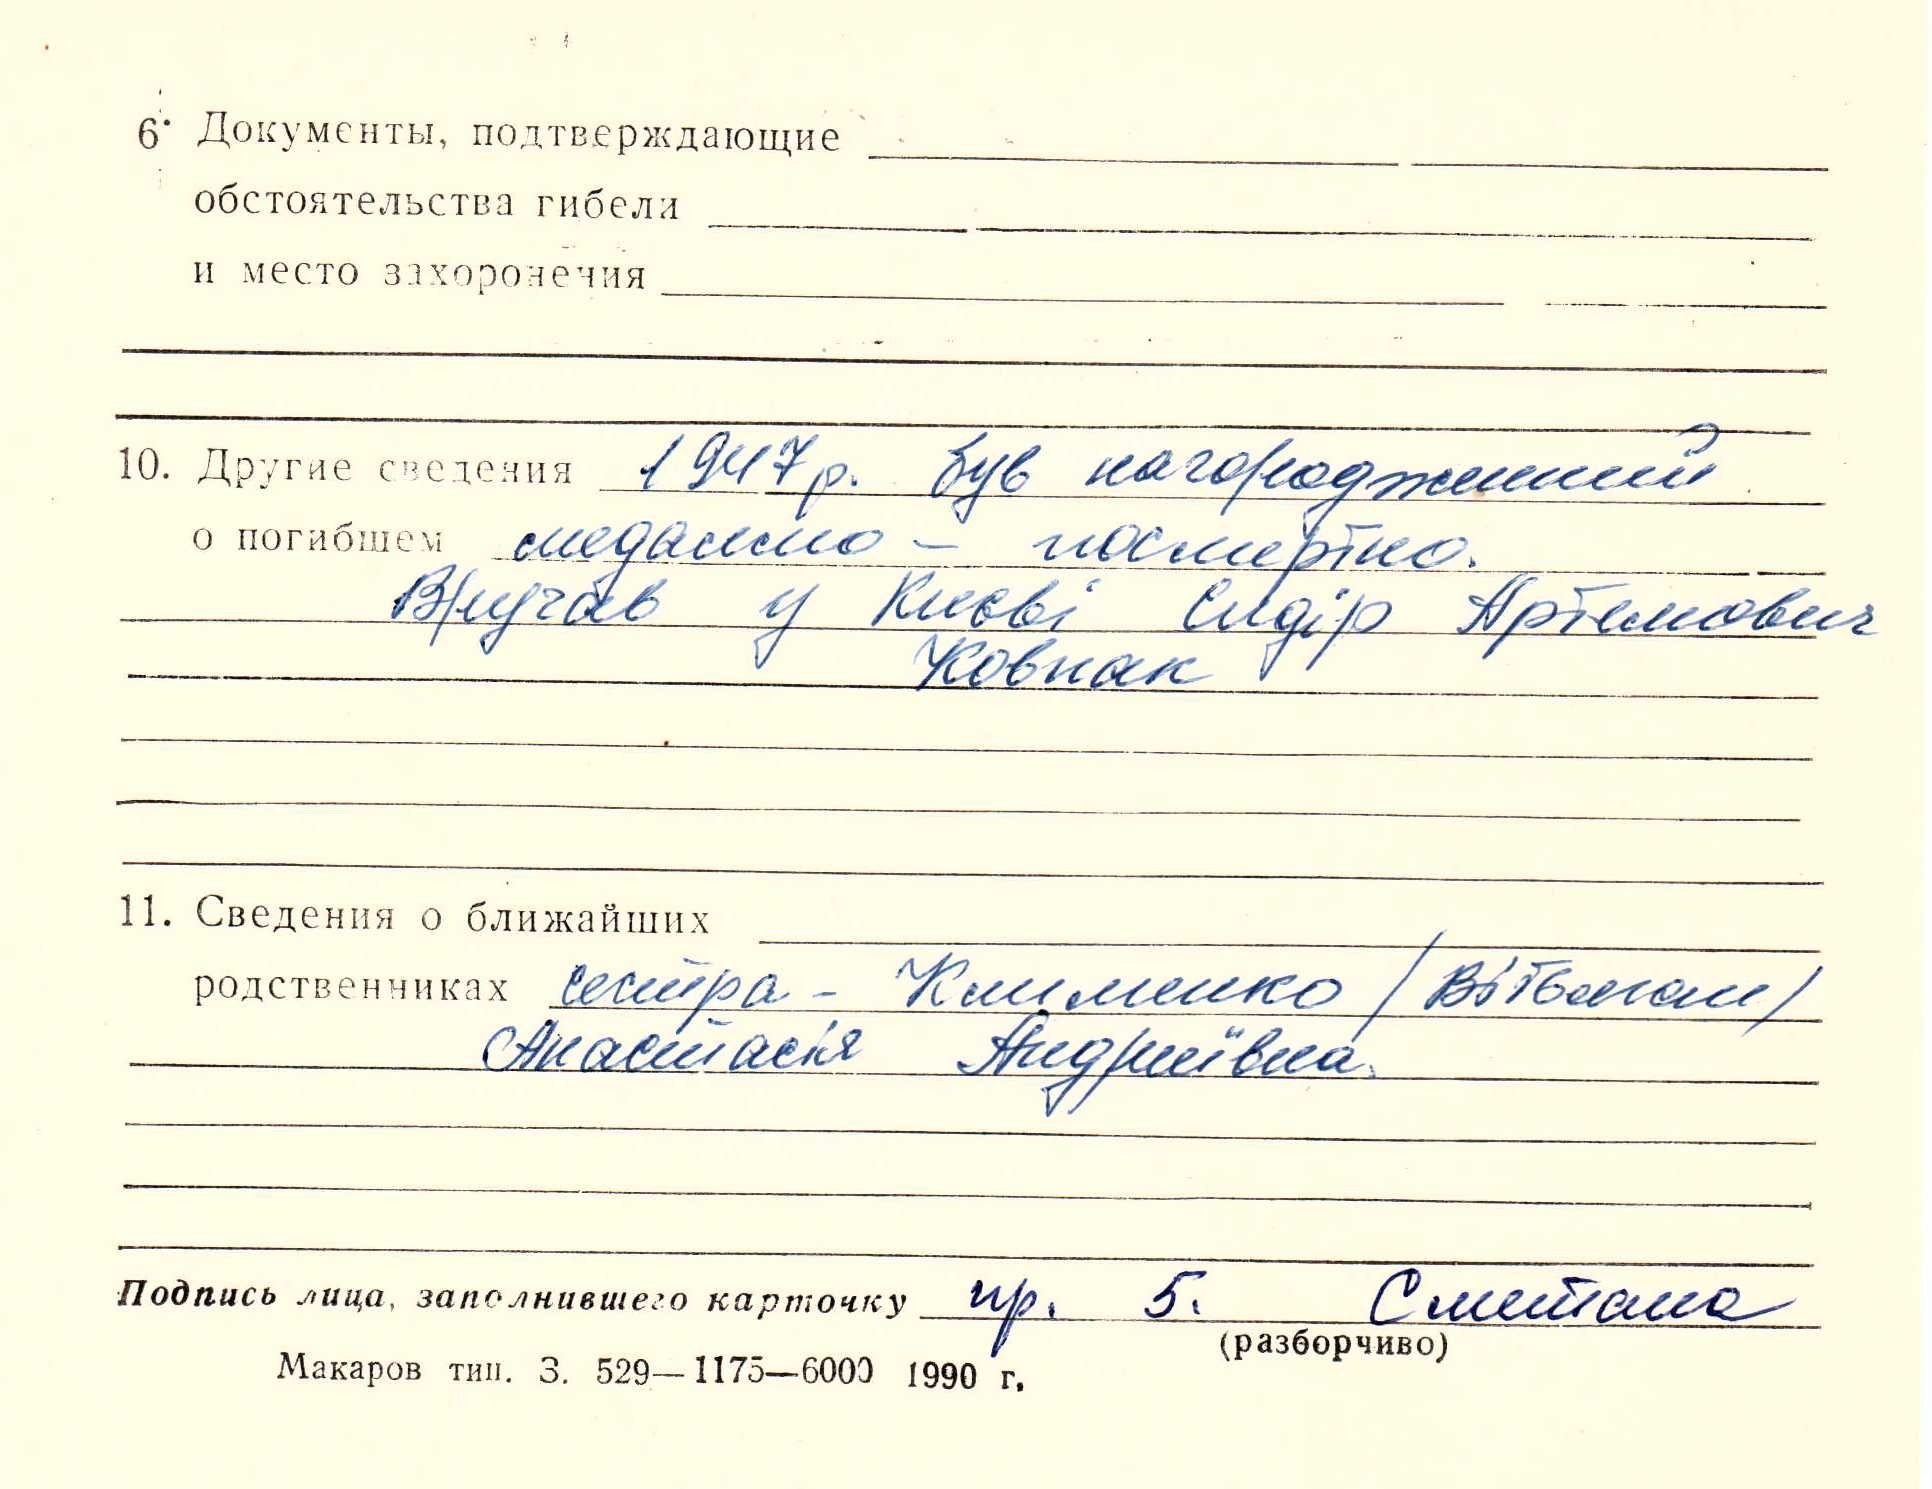 6. Документы, подтверждающие
обстоятельства гибели
и место захоронечия
10. Другие сведения 1947 р. був нагороджений
о погибшем медаллю – посмертно.
Вручав у Києві Сидір Артемович
Ковпак
11. Сведения о ближайших
родственниках сестра – Клименко /
Анастасія Андріївна.
Подпись лица, заполнившего карточку пр. Б. Сметана
(разборчиво)
Макаров тип. З. 529—1175—6000 1990 г.